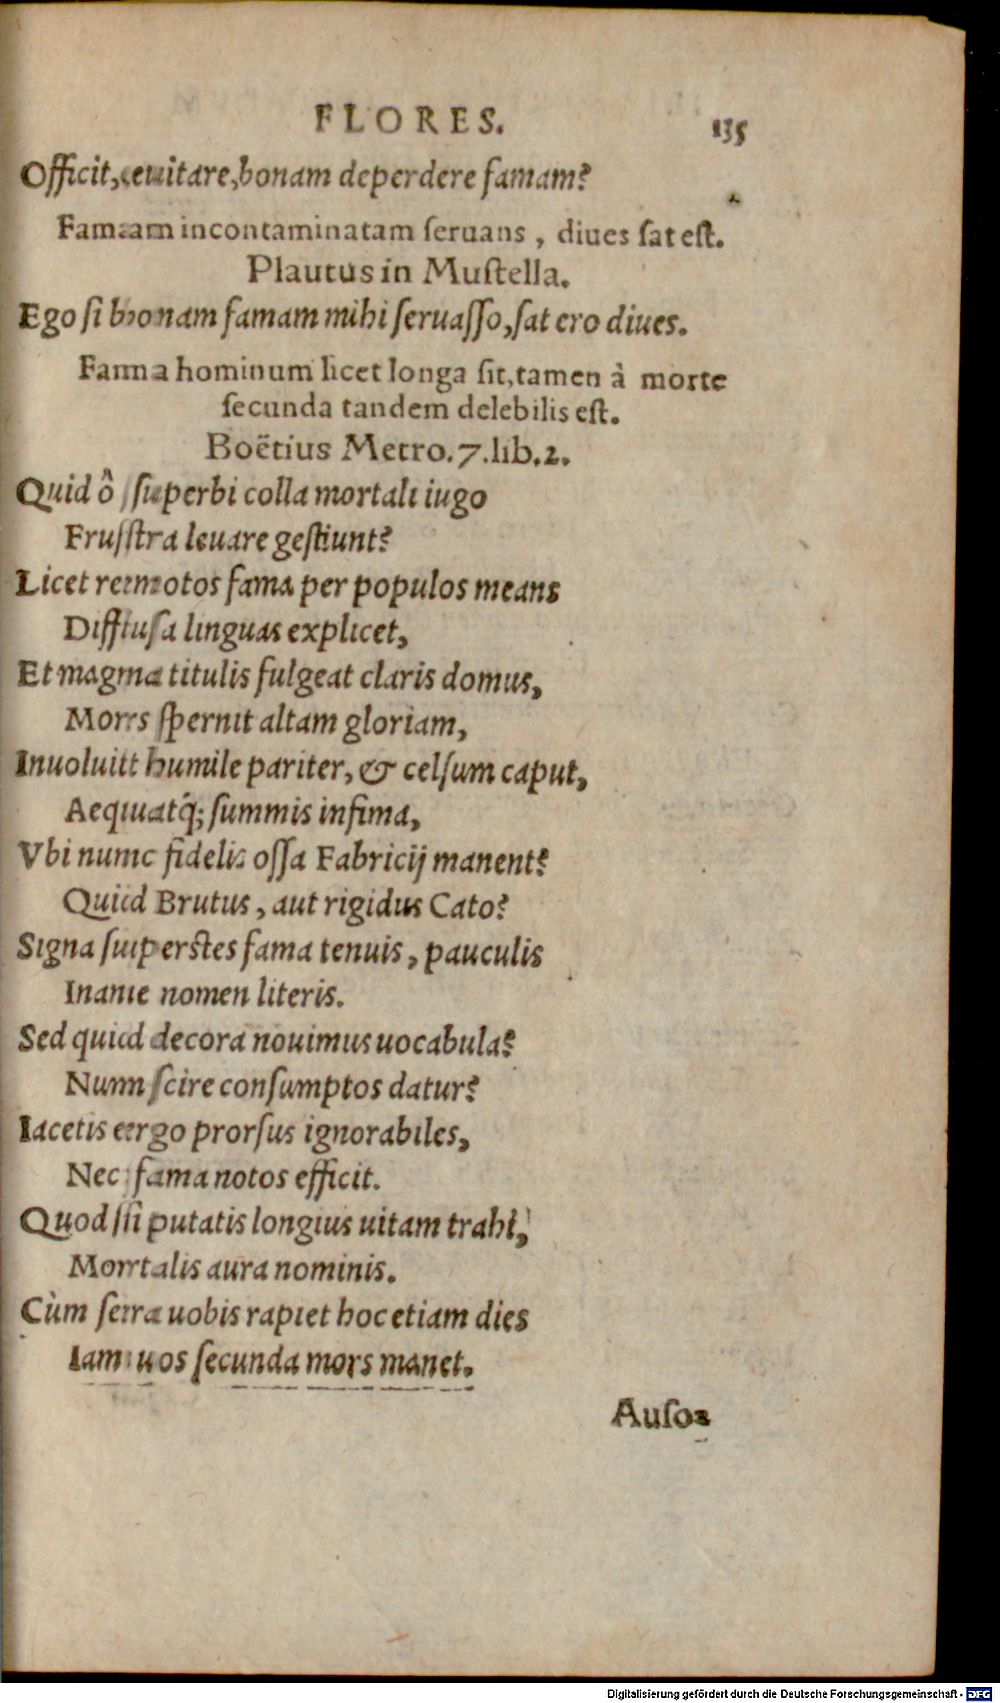 FLORES. 135
Officit, euitare, bonam deperdere famam?
Famam incontaminatam seruans, diues sat est.
Plautus in Mustella.
Ego si bonam famam mihi seruasso, sat ero diues.
Fama hominum licet longa sit, tamen à morte
secunda tandem delebilis est.
Boëtius Metro. 7. lib. 2.
Quid ô superbi colla mortali iugo
Frustra leuare gestiunt?
Licet remotos fama per populos means
Diffusa linguas explicet,
Et magna titulis fulgeat claris domus,
Mors spernit altam gloriam,
Inuoluit humile pariter, & celsum caput,
Aequatq́; summis infima,
Vbi nunc fidelis ossa Fabricij manent?
Quid Brutus, aut rigidus Cato?
Signa superstes fama tenuis, pauculis
Inane nomen literis.
Sed quid decora nouimus uocabula?
Num scire consumptos datur?
Iacetis ergo prorsus ignorabiles,
Nec fama notos efficit.
Quod si putatis longius uitam trahi,
Mortalis aura nominis.
Cùm sera uobis rapiet hoc etiam dies
Iam uos secunda mors manet.
Auso-
Digitalisierung gefördert durch die Deutsche Forschungsgemeinschaft - DFG